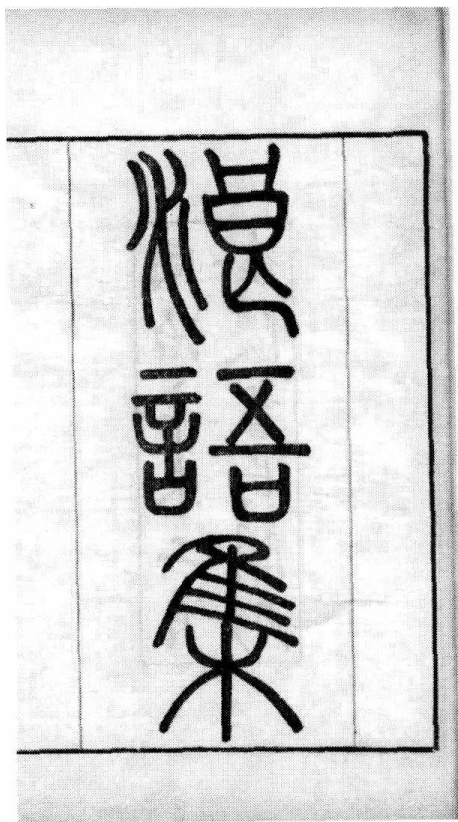 浪語集